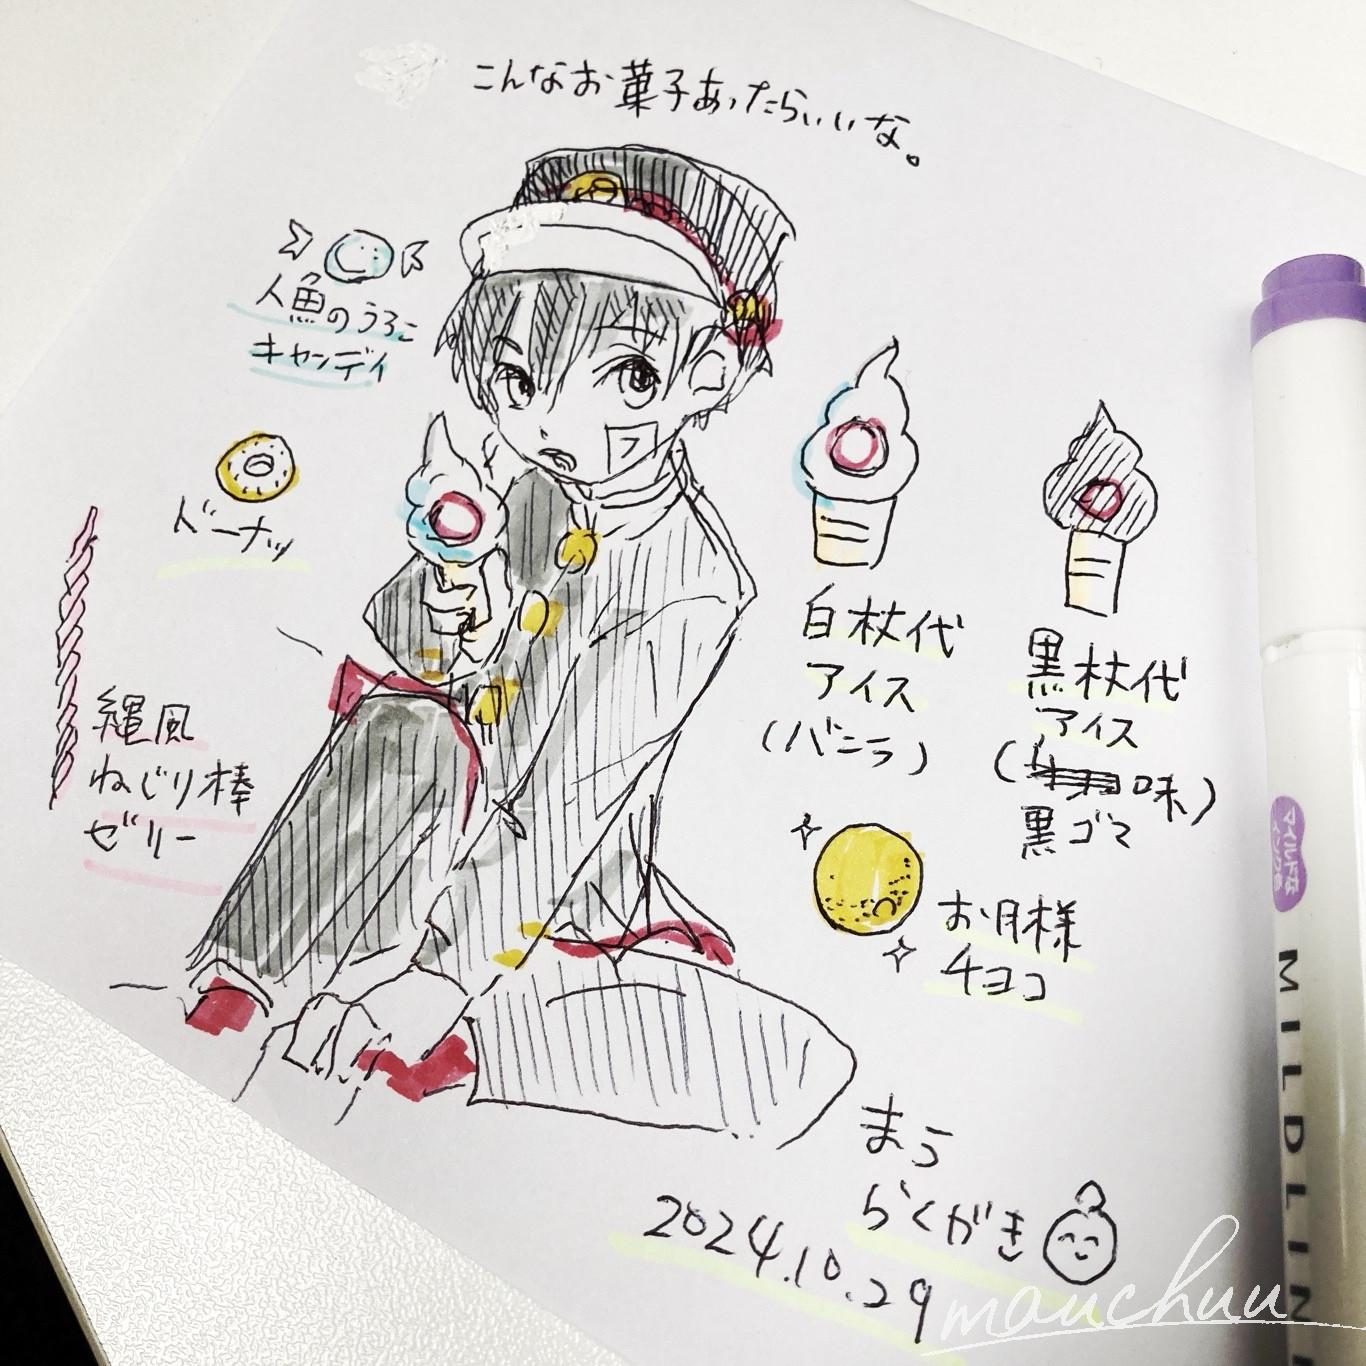 こんなお菓子あったらいいな。
人魚のうろこ
キャンディ
ドーナッツ
縄風
ねじり棒
ゼリー
封
白杖代
アイス
(バニラ)
黒杖代
アイス
(味)
黒ゴマ
お月様
チョコ
まう
らくがき
2024.10.29
mauchuu
マイルドな
インク色
MILDLIN